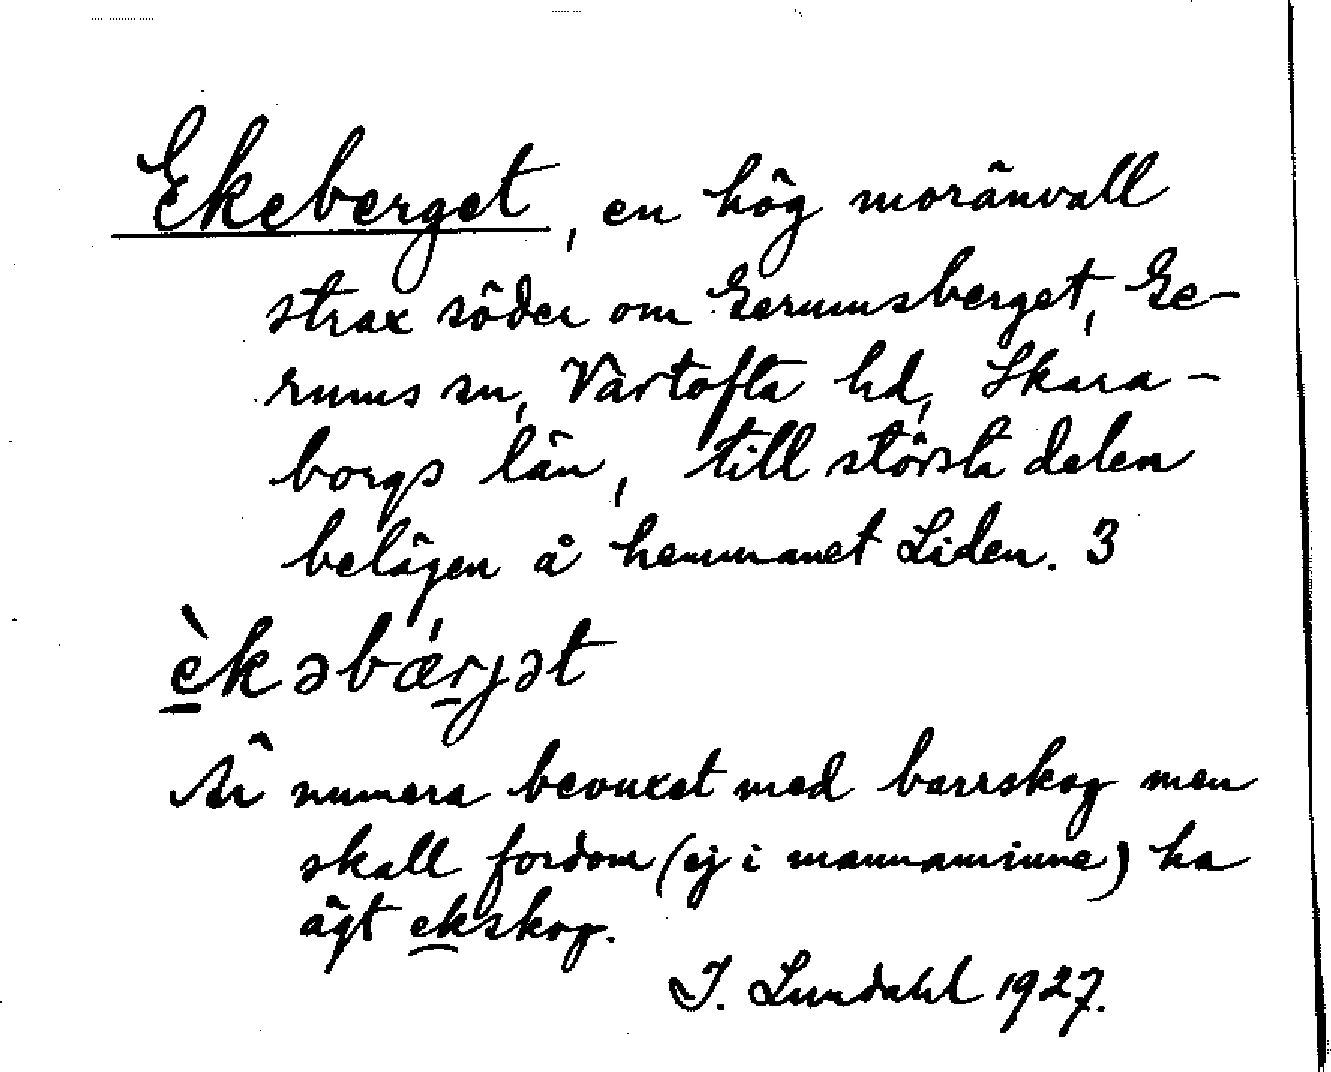 Ekeberget, en hög moränvall
strax söder om Gerumsberget, Ge-
rums sn, Vartofta hd, Skara-
borgs län, till största delen
belägen å hemmanet Liden. 3
è̱kəbæ̀rjət
Är numera bevuxet med barrskog men
skall fordom (ej i mannaminne) ha
ägt ekskog.
I. Lundahl 1927.